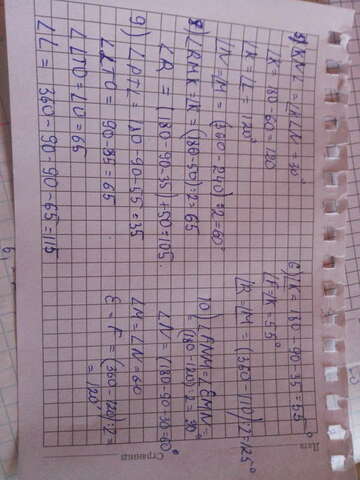 5) ∠KNL = ∠KLN = 30°
∠K = 180 - 60 = 120
∠K = ∠L = 120°
∠N = ∠M = (360 - 240) : 2 = 60°
8) ∠RMK = ∠K = (180 - 50) : 2 = 65
∠R = (180 - 90 - 35) + 50 = 105.
9) ∠PTL = 180 - 90 - 55 = 35
∠LTO = 90 - 35 = 65.
∠LTO = ∠O = 65
∠L = 360 - 90 - 90 - 65 = 115
6) ∠K = 180 - 90 - 35 = 55°
∠F = ∠K = 55°
∠R = ∠M = (360 - 110) : 2 = 125°
10) ∠FNM = ∠EMN =
= (180 - 120) : 2 = 30°
∠N = (180 - 90 - 30 = 60°
∠M = ∠N = 60
E = F = (360 - 120) : 2 =
= 120°
Дата
Страница